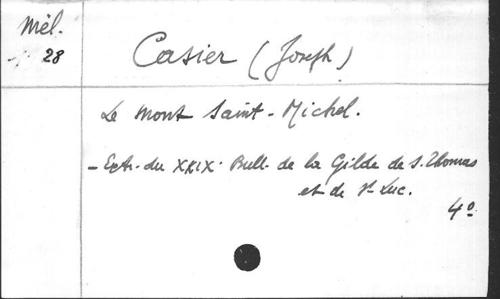 Mél.
28
Casier (Joseph)
Le Mont Saint-Michel.
- Extr. du XXIX. Bull. de la Gilde de S. Thomas
et de St Luc.
4º